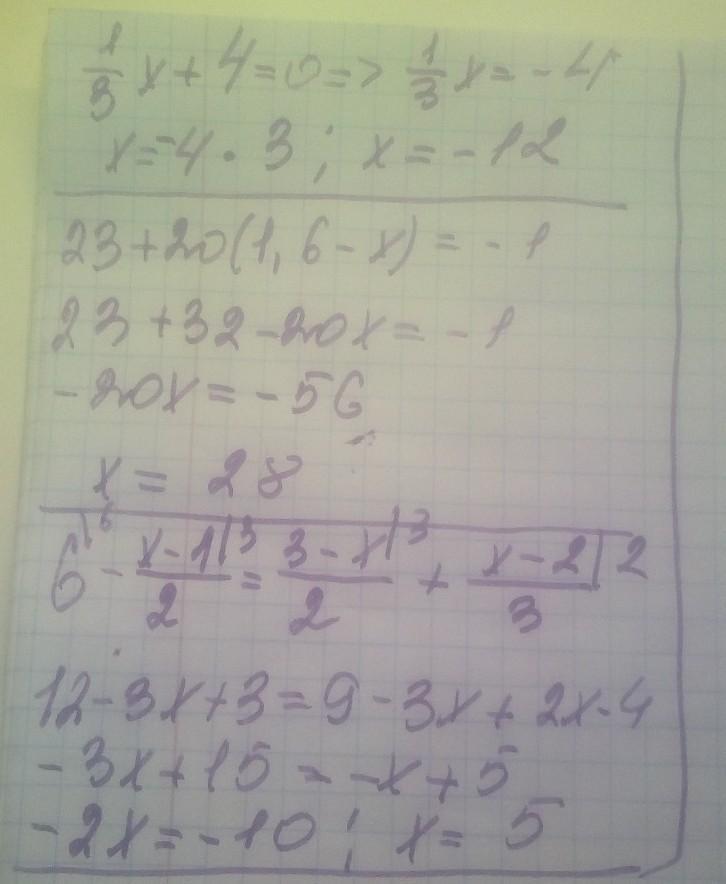 1/3 x + 4 = 0 => 1/3 x = -4
x = -4 · 3 ; x = -12
23 + 20(1,6 - x) = -1
23 + 32 - 20x = -1
-20x = -56
x = 28
6|⁶ - (x - 1)/2|³ = (3 - x)/2|³ + (x - 2)/3|2
12 - 3x + 3 = 9 - 3x + 2x - 4
-3x + 15 = -x + 5
-2x = -10 ; x = 5